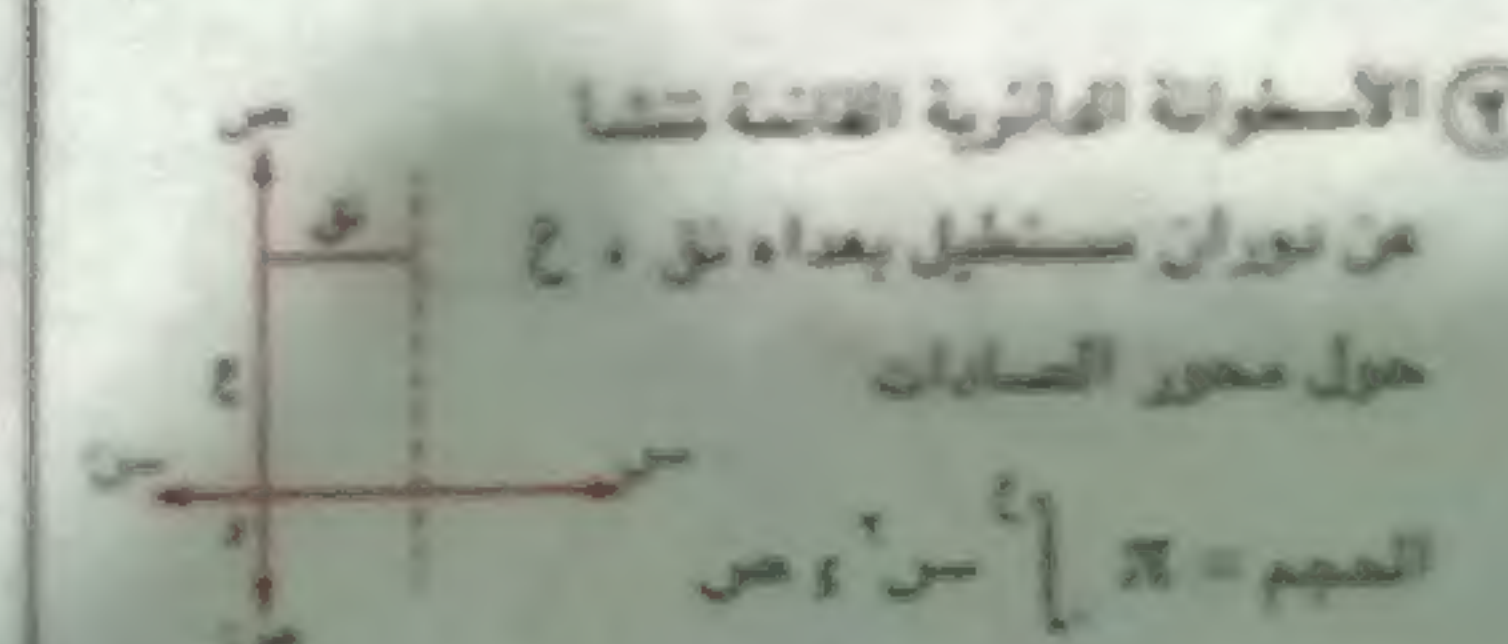 ② الأسطوانة الدائرية القائمة تنشأ
من دوران مستطيل بعداه نق ، ع
حول محور الصادات
الحجم = π ∫ ع . س² ء ص
ص
نق
ع
سَ
س
و